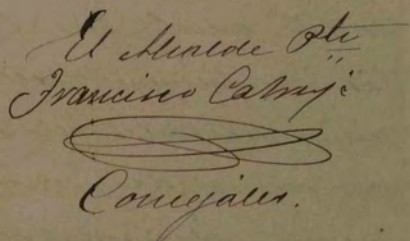 El Alcalde Pte
Francisco
Concejales.